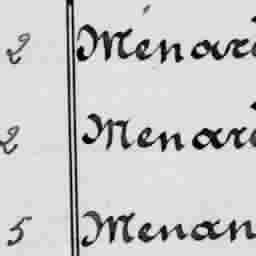 2 Ménard
2 Menard
5 Menan